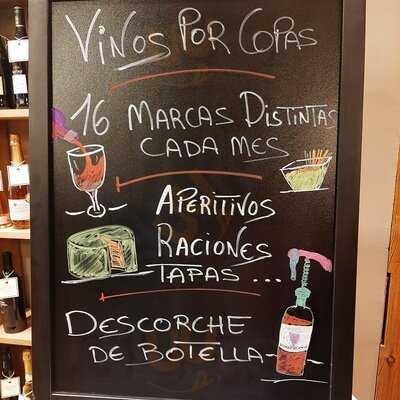 Vinos Por Copas
16 Marcas Distintas
cada mes
Aperitivos
Raciones
Tapas ...
Descorche
de botella